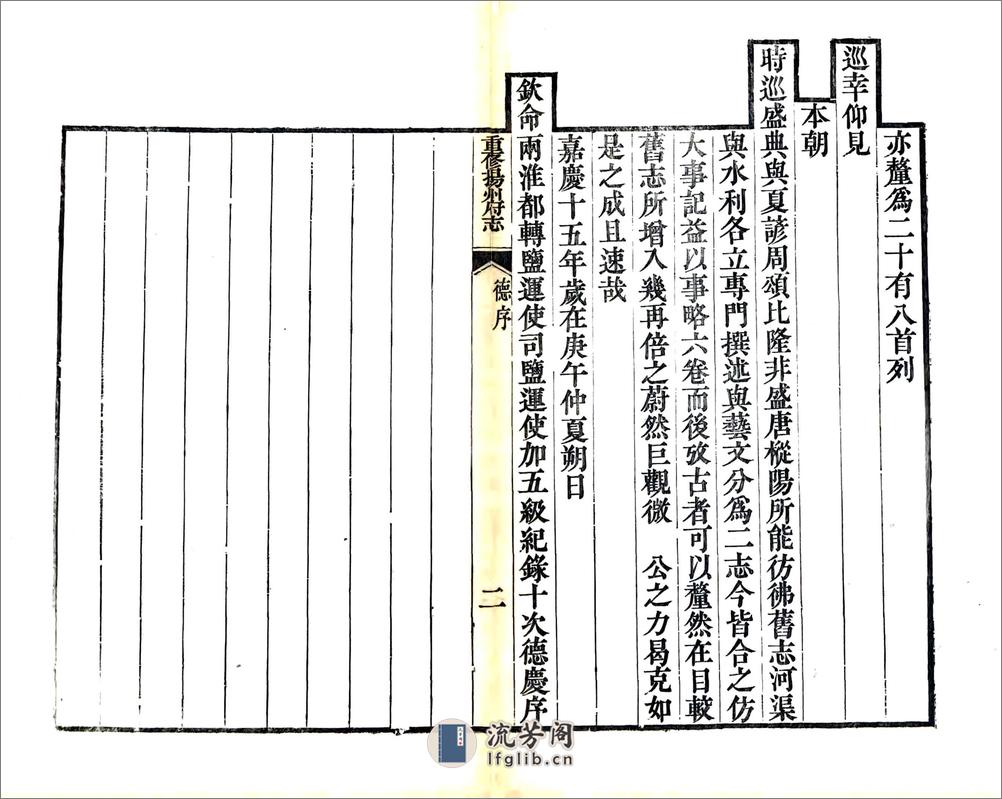 亦釐爲二十有八首列
巡幸仰見
本朝
時巡盛典與夏諺周頌比隆非盛唐樅陽所能彷彿舊志河渠
與水利各立專門撰述與藝文分爲二志今皆合之仿
大事記益以事略六卷而後攷古者可以釐然在目較
舊志所增入幾再倍之蔚然巨觀微　公之力曷克如
是之成且速哉
嘉慶十五年歲在庚午仲夏朔日
欽命兩淮都轉鹽運使司鹽運使加五級紀錄十次德慶序
重修揚州府志
德序
二
流芳阁
lfglib.cn